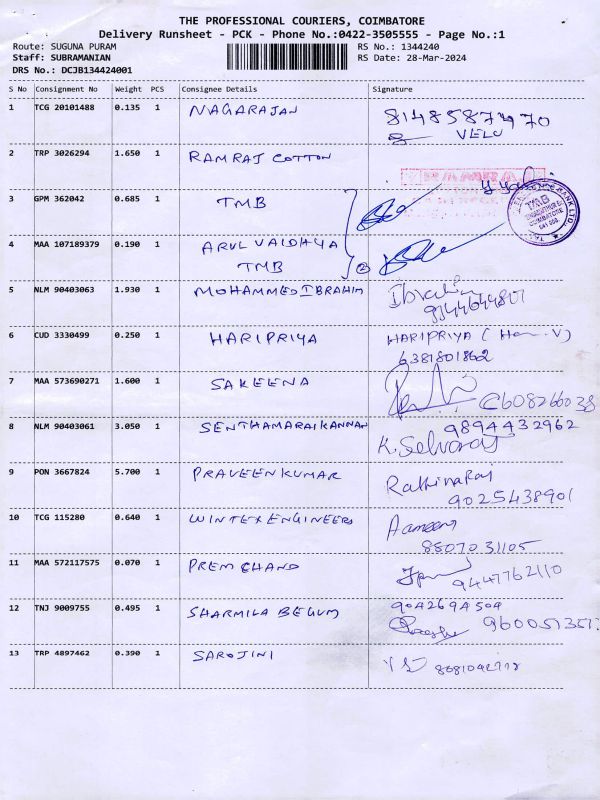 THE PROFESSIONAL COURIERS, COIMBATORE
Delivery Runsheet - PCK - Phone No.:0422-3505555 - Page No.:1
Route: SUGUNA PURAM RS No.: 1344240
Staff: SUBRAMANIAN RS Date: 28-Mar-2024
DRS No.: DCJB134424001
S No Consignment No Weight PCS Consignee Details Signature
1 TCG 20101488 0.135 1 NAGARAJAN
VELU
2 TRP 3026294 1.650 1 RAMRAJ COTTON
3 GPM 362042 0.685 1 TMB
4 MAA 107189379 0.190 1 ARUL VAIDHYA
TMB 2
5 NLM 90403063 1.930 1 MOHAMMED IBRAHIM Ibrahim
6 CUD 3330499 0.250 1 HARIPRIYA HARIPRIYA
6381801862
7 MAA 573690271 1.600 1 SAKEENA
8 NLM 90403061 3.050 1 SENTHAMARAIKANNAN 9894432962
K. Selvaraj
9 PON 3667824 5.700 1 PRAVEEN KUMAR Rathinaraj
9025438901
10 TCG 115280 0.640 1 WINTEX ENGINEERS
8807031105
11 MAA 572117575 0.070 1 PREM CHAND
9447762110
12 TNJ 9009755 0.495 1 SHARMILA BEGUM 904269A504
13 TRP 4897462 0.390 1 SAROJINI